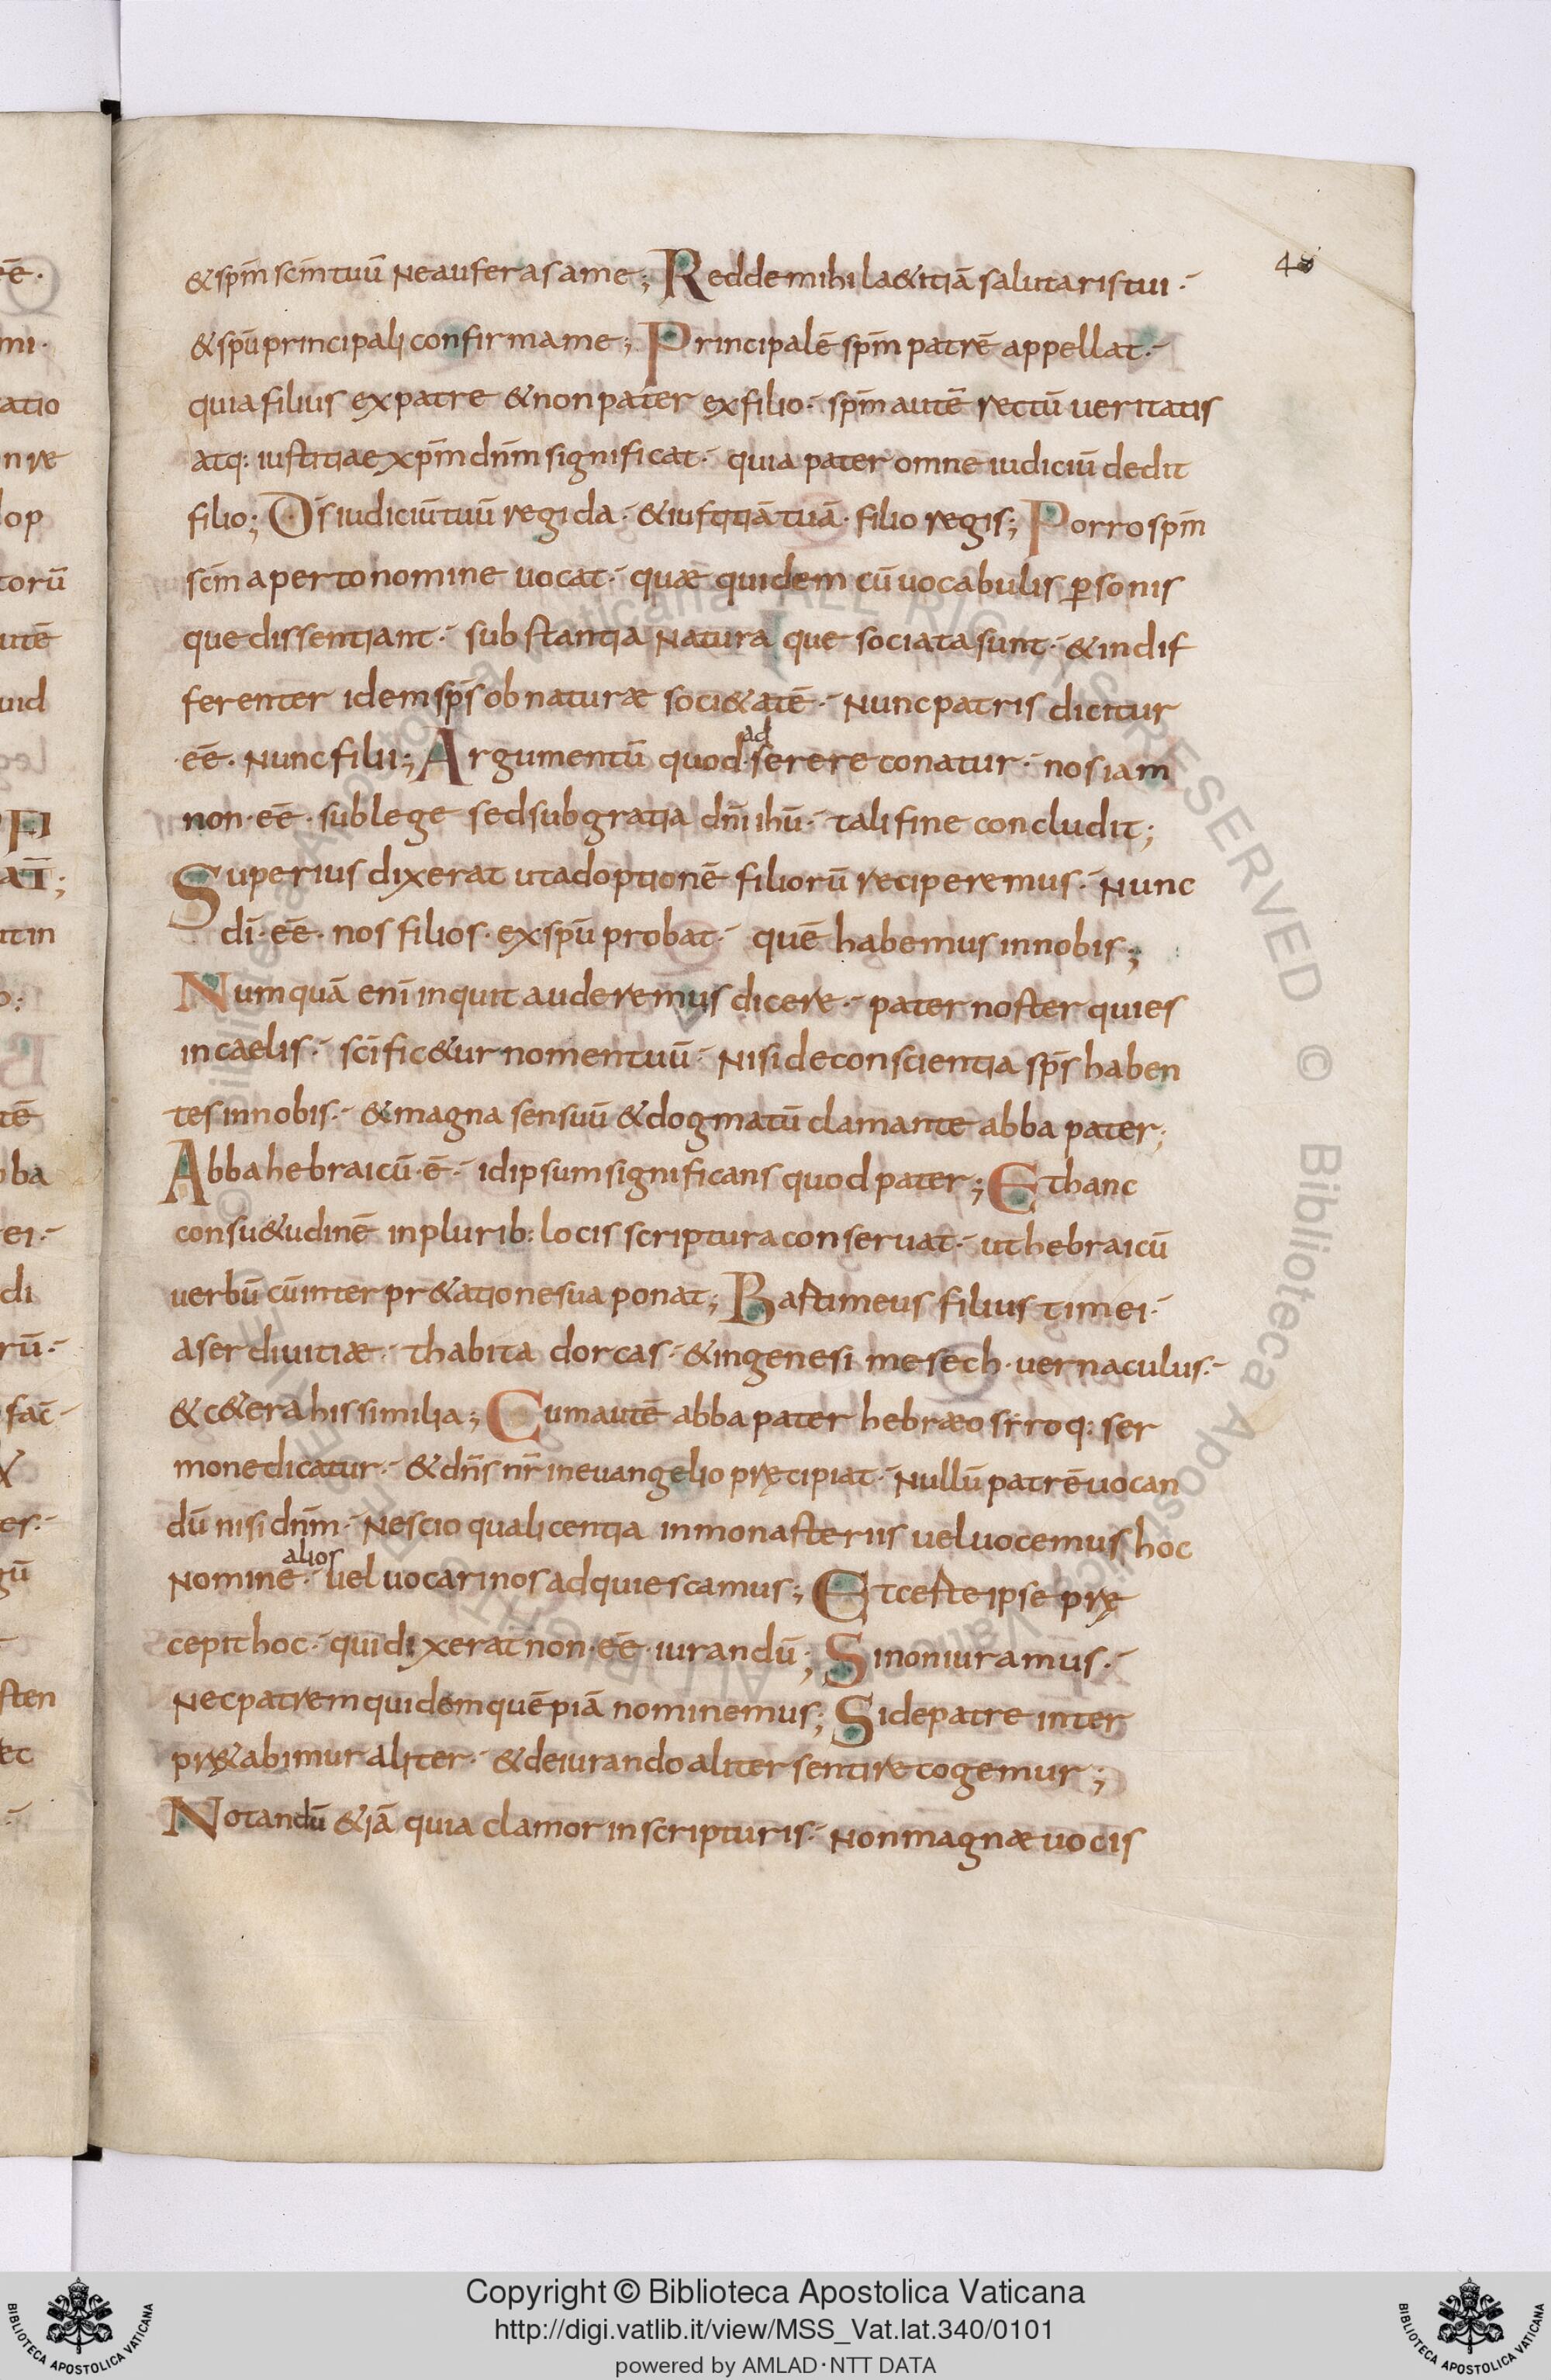 48
& sp̄m sc̄m tuū ne auferas a me; Redde mihi la&itiā salutaris tui·
& spū principali confirma me; Principalē sp̄m patrē appellat·
quia filius ex patre & non pater ex filio· sp̄m autē rectū ueritatis
atq: iustitiae xp̄m dn̄m significat· quia pater omne iudiciū dedit
filio; Ds̄ iudiciū tuū regi da· & iustitiā tuā· filio regis; Porro sp̄m
sc̄m aperto nomine uocat· quæ quidem cū uocabulis p̱sonis
que dissentiant· substantia natura que sociata sunt· & indif
ferenter idem sp̄s ob naturæ soci&atē· Nunc patris dicitur
·eē· Nunc filii; Argumentū quod ad serere conatur· nos iam
non·eē· sub lege sed sub gratia dn̄i ihū· tali fine concludit;
Superius dixerat ut adoptionē filiorū reciperemus· Nunc
dī·eē· nos filios· ex spū probat· quē habemus in nobis;
Numquā enī inquit auderemus dicere· pater noster qui es
in caelis· sc̄ific&ur nomen tuū· Nisi de conscientia sp̄s haben
tes in nobis· & magna sensuū & dogmatū clamante abba pater;
Abba hebraicū·ē· id ipsum significans quod pater; Et hanc
consu&udinē in plurib: locis scriptura conseruat· ut hebraicū
uerbū cū interpr&atione sua ponat; Bastimeus filius timei·
aser diuitiæ· thabita dorcas· & in genesi mesech· uernaculus·
& c&era his similia; Cum autē abba pater hebræo sr̄roq: ser
mone dicatur· & dn̄s nr̄ in euangelio pręcipiat· Nullū patrē uocan
dū nisi dn̄m· Nescio qua licentia in monasteriis uel uocemus hoc
nomine· alios uel uocari nos adquiescamus; Et ceste ipse prę
cepit hoc· qui dixerat non·eē· iurandū; Si non iuramus·
Nec patrem quidem quēpiā nominemus; Si de patre inter
prę&abimur aliter· & de iurando aliter sentire cogemur;
Notandū &iā quia clamor in scripturis· Non magnæ uocis
© Biblioteca Apostolica Vaticana ALL RIGHTS RESERVED
Copyright © Biblioteca Apostolica Vaticana
http://digi.vatlib.it/view/MSS_Vat.lat.340/0101
powered by AMLAD·NTT DATA
BIBLIOTECA APOSTOLICA VATICANA
BIBLIOTECA APOSTOLICA VATICANA